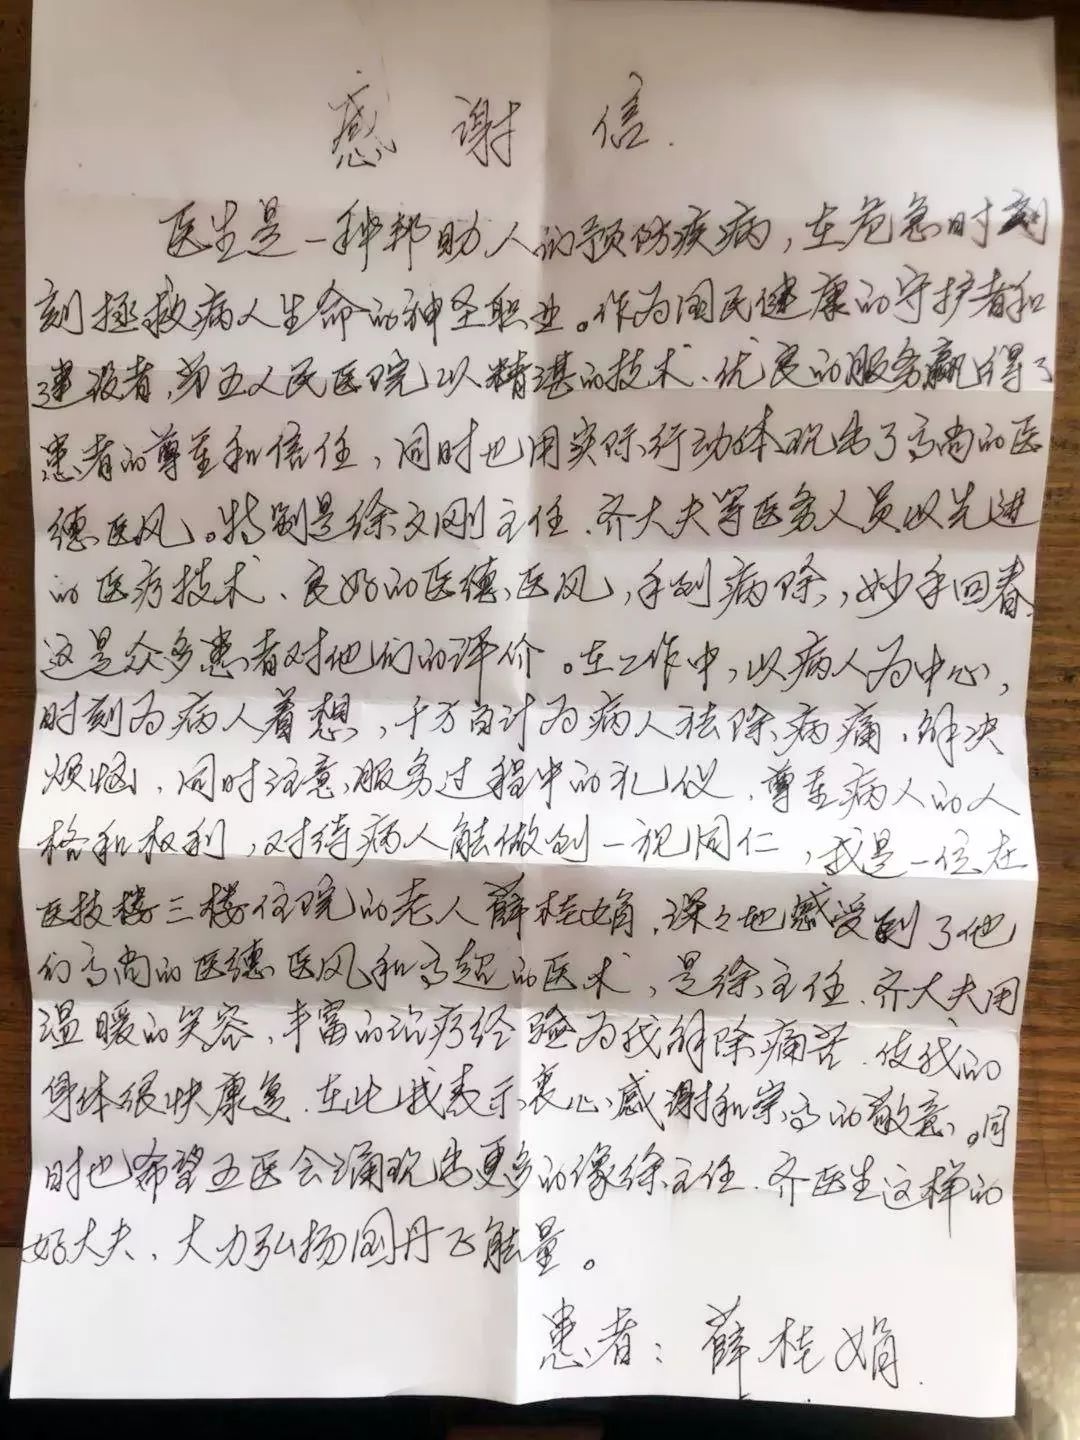 感谢信.
医生是一种帮助人的预防疾病，在危急时刻
刻拯救病人生命的神圣职业。作为国民健康的守护者和
建设者，第五人民医院以精湛的技术、优良的服务赢得了
患者的尊重和信任，同时也用实际行动体现出了高尚的医
德医风。特别是徐文刚主任、齐大夫等医务人员以先进
的医疗技术、良好的医德、医风，手到病除，妙手回春、
这是众多患者对他们的评价。在工作中，以病人为中心，
时刻为病人着想，千方百计为病人祛除病痛、解决
烦恼、同时注意服务过程中的礼仪、尊重病人的人
格和权利，对待病人能做到一视同仁，我是一位在
医技楼三楼住院的老人薛桂娟，深々地感受到了他
们高尚的医德医风和高超的医术，是徐主任、齐大夫用
温暖的笑容、丰富的治疗经验为我解除痛苦、使我的
身体很快康复、在此我表示衷心感谢和崇高的敬意。同
时也希望五医会涌现出更多的像徐主任、齐医生这样的
好大夫、大力弘扬国丹飞能量。
患者：薛桂娟.